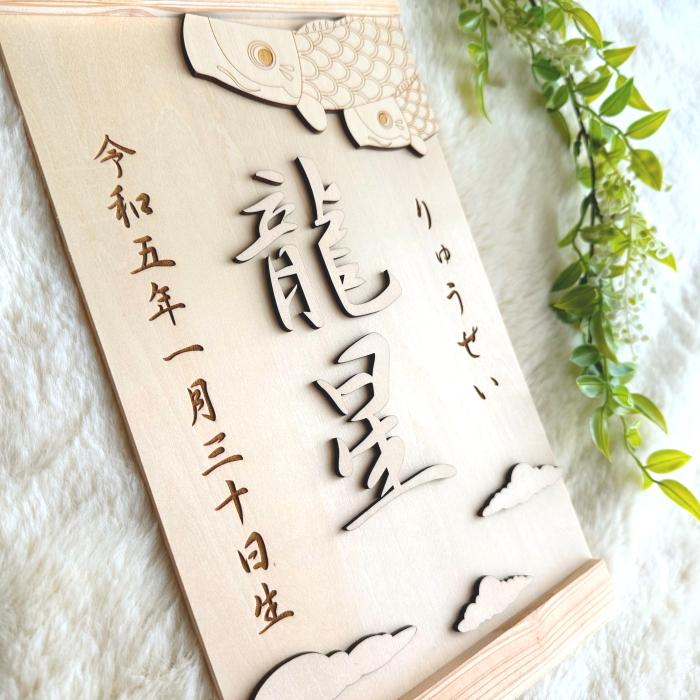 りゅうせい
龍星
令和五年一月三十日生